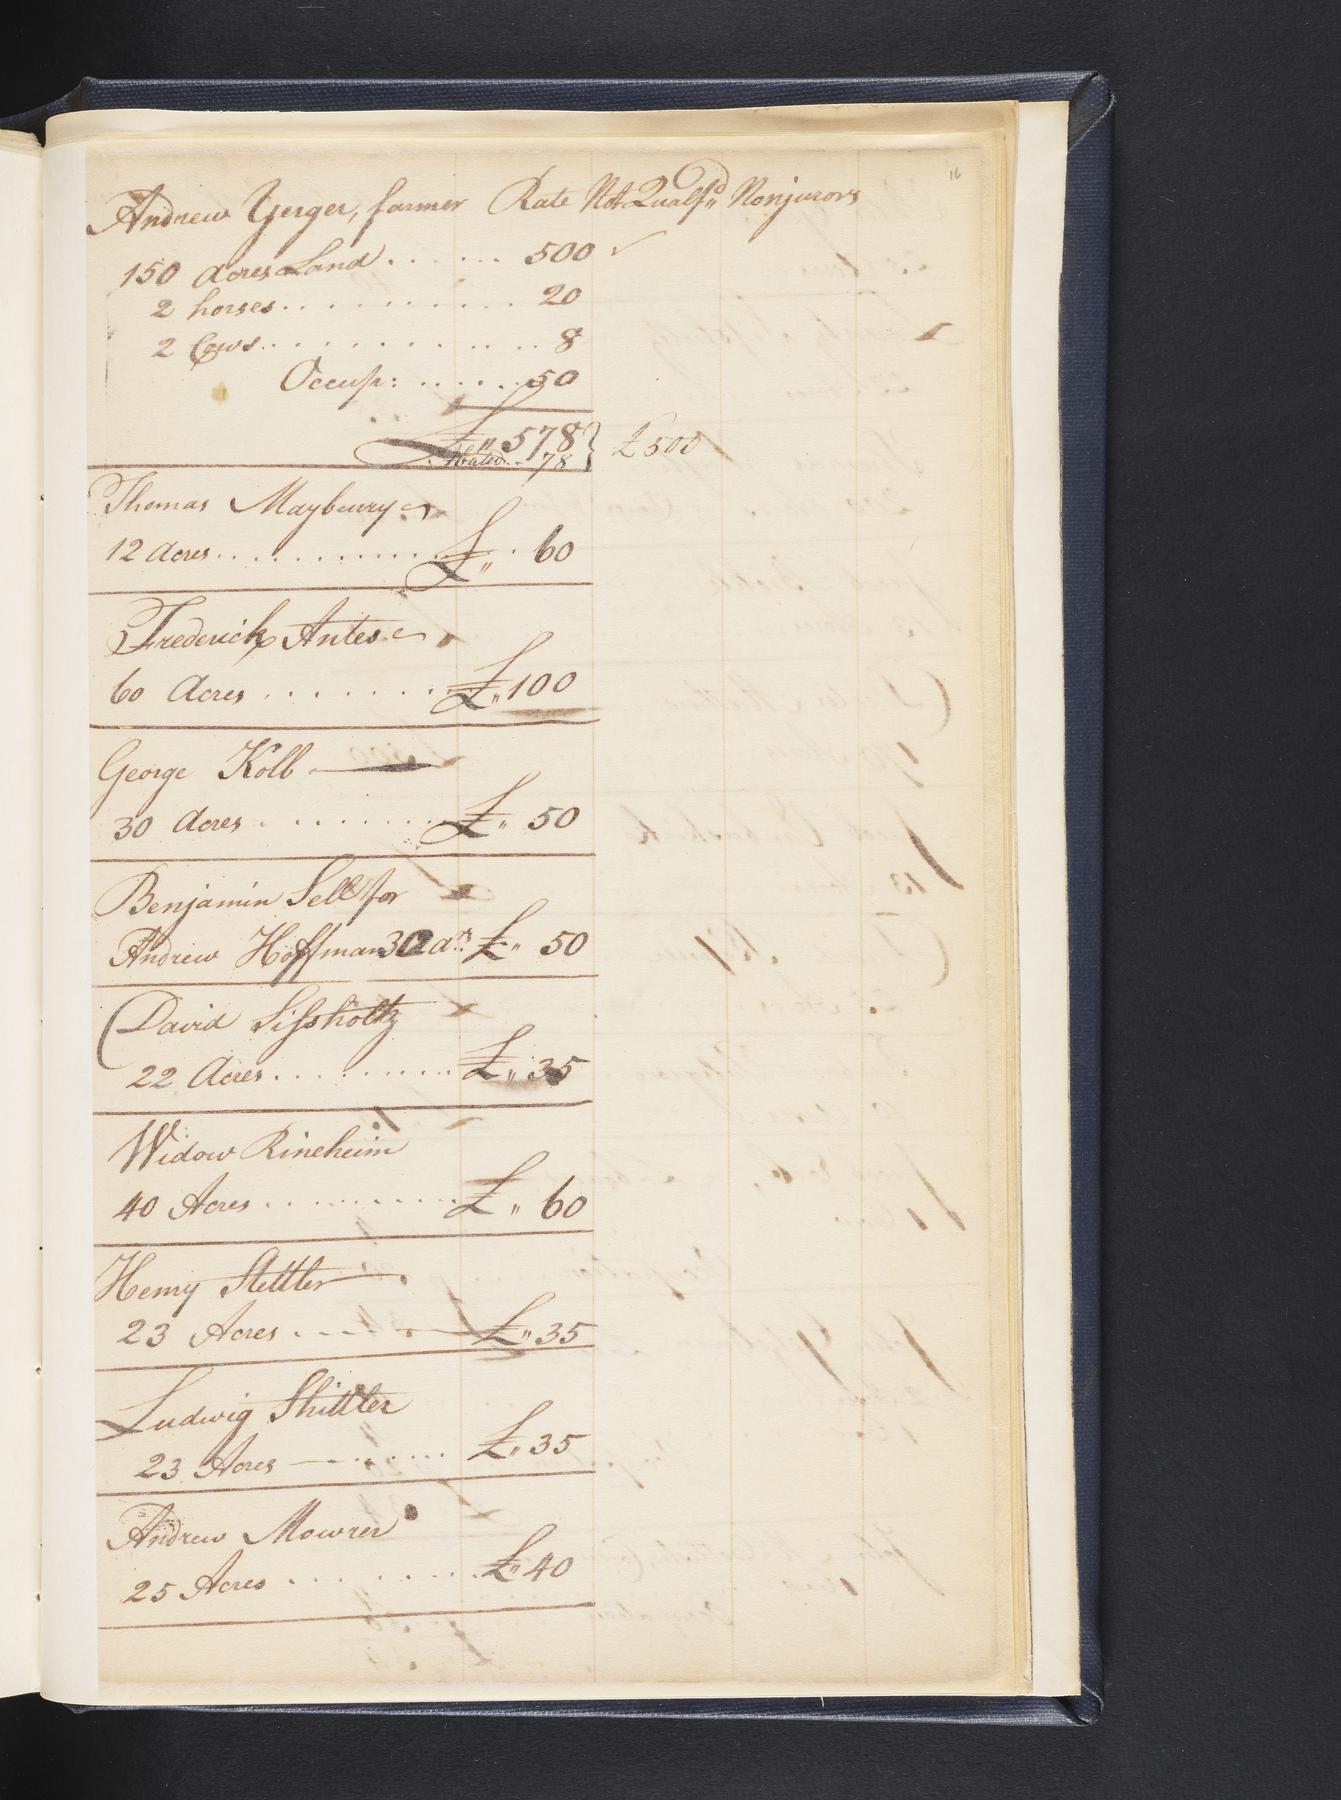 16
Andrew Yerger, farmer Rate Not Qualfd Nonjurors
150 Acres Land . . . . . . 500
2 horses . . . . . . . . . . 20
2 Cows . . . . . . . . . . . . 8
Occup: . . . . . . 50
£" 578
Abated . . 78 } £500
Thomas Mayburry
12 Acres . . . . . . . . . . . £" 60
Frederick Antes
60 Acres . . . . . . . . £" 100
George Kolb
30 Acres . . . . . . . . £" 50
Benjamin Sell for
Andrew Hoffman 30 ars £" 50
David Sissholtz
22 Acres . . . . . . . . . £" 35
Widow Rineheim
40 Acres . . . . . . . . . £" 60
Henry Stettler
23 Acres . . . . £" 35
Ludwig Shittler
23 Acres . . . . . . £" 35
Andrew Mowrer
25 Acres . . . . . . . . £" 40